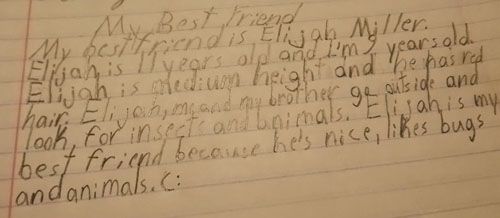 My Best Friend
My best friend is Elijah Miller.
Elijah is 11 years old and I'm 7 years old.
Elijah is medium height and he has red
hair. Elijah, me, and my brother go outside and
look, for insects and animals. Elijah is my
best friend because he's nice, likes bugs
and animals. (: